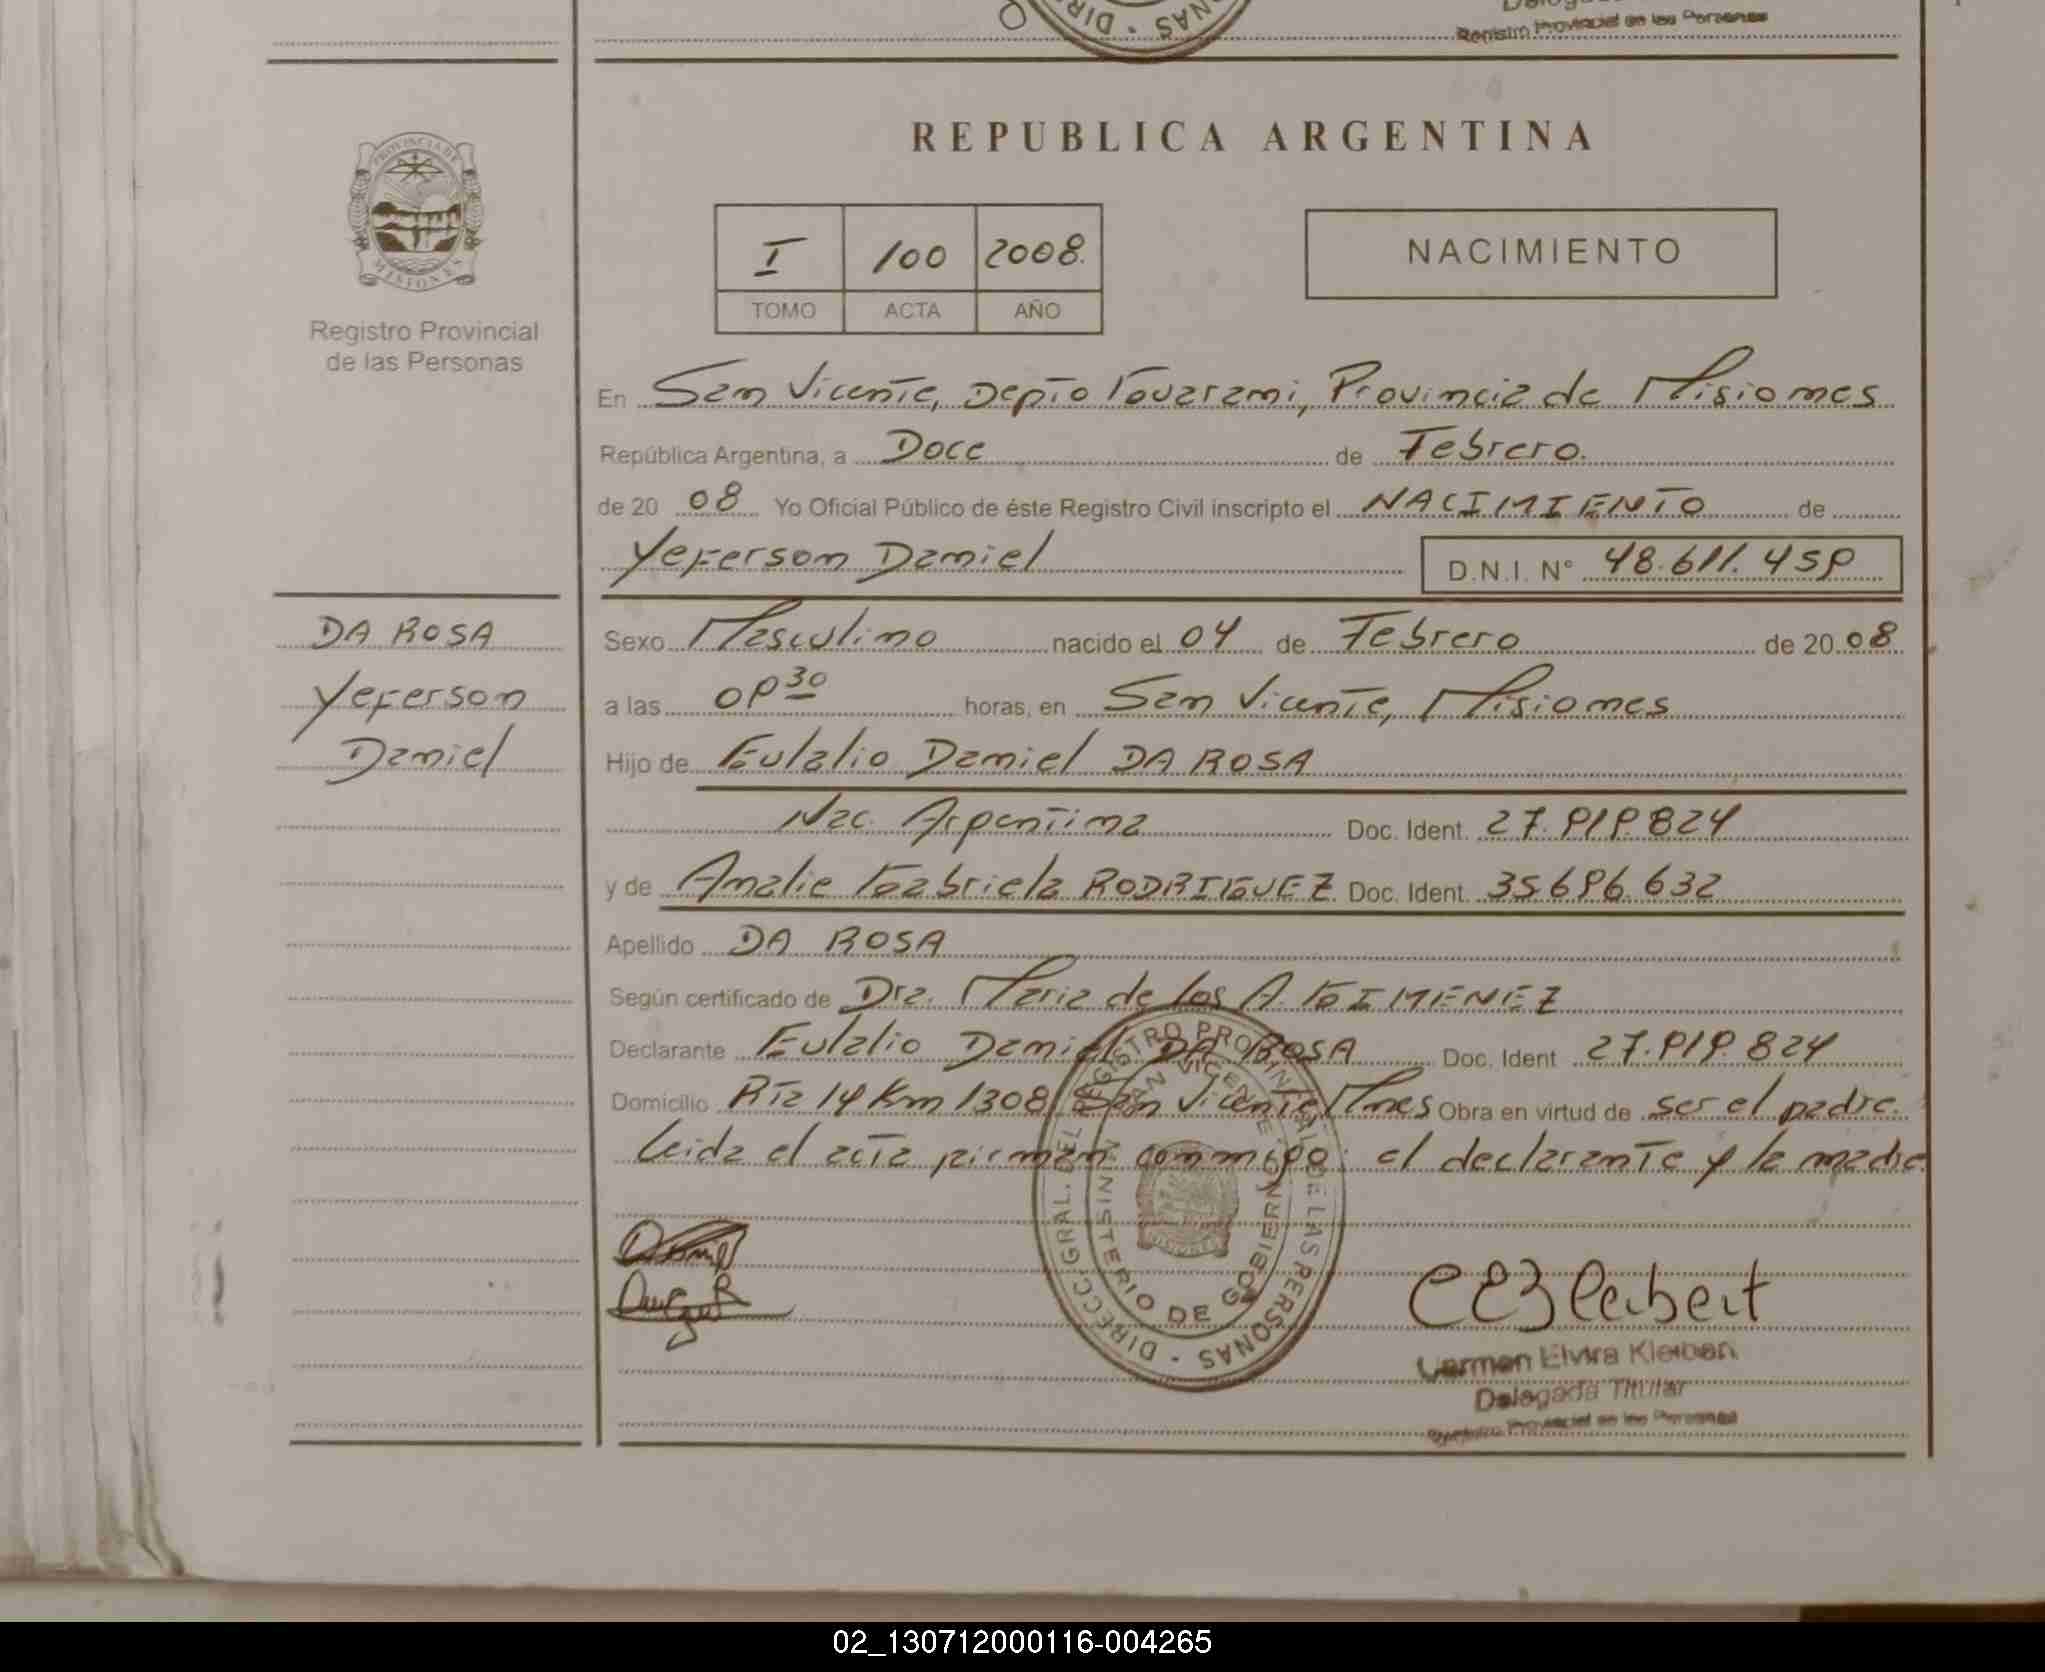 Registro Provincial de las Personas
REPUBLICA ARGENTINA
I 100 2008
TOMO ACTA AÑO
NACIMIENTO
PROVINCIA DE
MISIONES
Registro Provincial
de las Personas
En San Vicente, Depto Guarani, Provincia de Misiones
República Argentina, a Doce de Febrero.
de 20 08 Yo Oficial Público de éste Registro Civil inscripto el NACIMIENTO de
Yeferson Daniel D.N.I. N° 48.611.459
DA ROSA
Yeferson
Daniel
Sexo Masculino nacido el 04 de Febrero de 20 08
a las 09 30 horas, en San Vicente, Misiones
Hijo de Eulalio Daniel DA ROSA
Nac. Argentina Doc. Ident. 27.919.824
y de Analie Gabriela RODRIGUEZ Doc. Ident. 35.696.632
Apellido DA ROSA
Según certificado de Dra. Maria de los A. GIMENEZ
Declarante Eulalio Daniel DA ROSA Doc. Ident 27.919.824
Domicilio Rta 14 Km 1308 San Vicente Mnes Obra en virtud de ser el padre.
Leida el acta firman conmigo: el declarante y la madre
DIRECC. GRAL. DEL REGISTRO PROVINCIAL DE LAS PERSONAS
SAN VICENTE
MINISTERIO DE GOBIERNO
Carmen Elvira Kleibert
Delegada Titular
Registro Provincial de las Personas
02_130712000116-004265